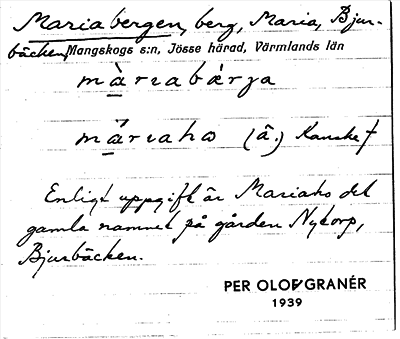 Mariabergen, berg, Maria, Bjur-
bäcken, Mangskogs s:n, Jösse härad, Värmlands län
màriabærja
máriaho (â.) Kanske †
Enligt uppgift är Mariaho det
gamla namnet på gården Nytorp,
Bjurbäcken.
PER OLOF GRANÉR
1939